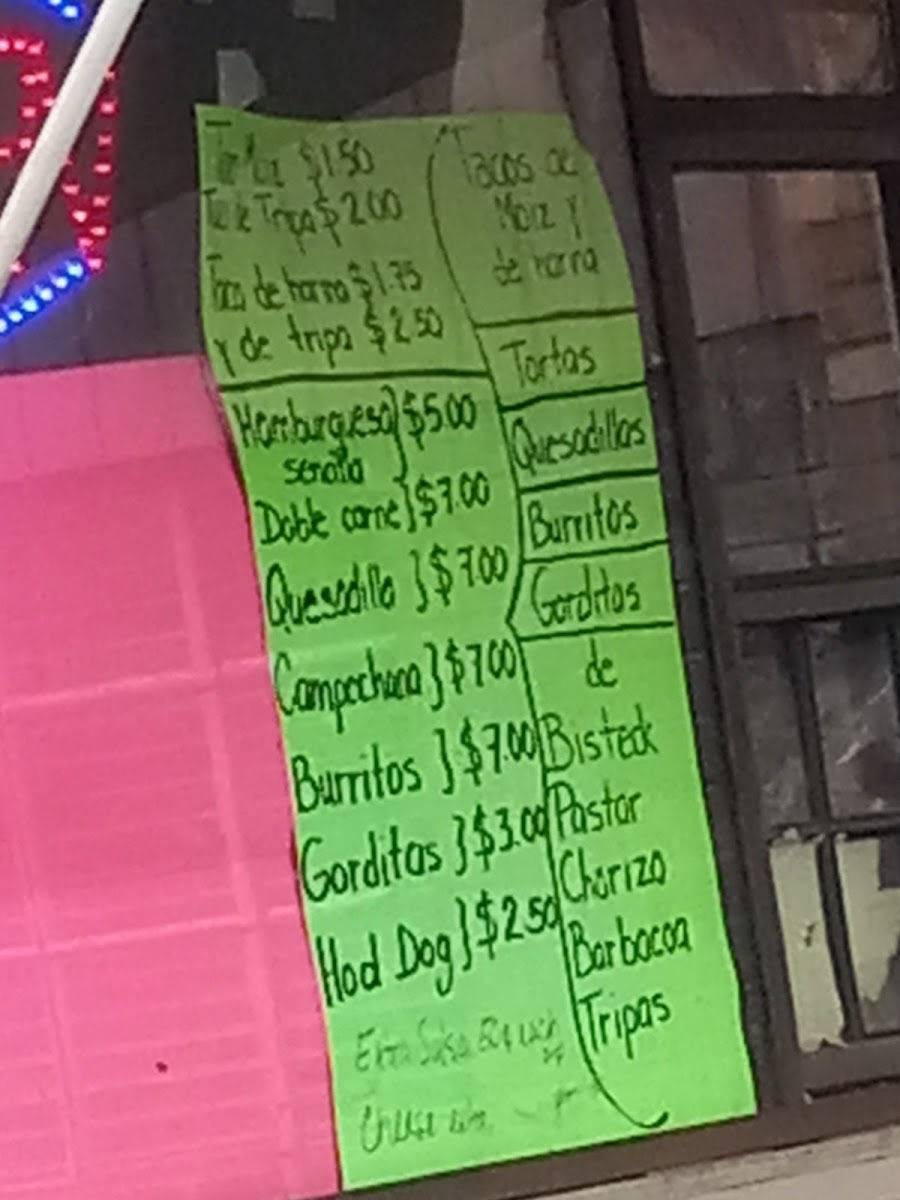 $1.50
Tripa $2.00
Taco de harina $1.75
y de tripa $2.50
Hamburguesa} $5.00
senailla
Doble carne} $7.00
Quesadilla} $7.00
Campechana} $7.00
Burritos} $7.00
Gorditas} $3.00
Hod Dog} $2.50
Extra Salsa
Tacos de
Maiz y
de harina
Tortas
Quesadillas
Burritos
Gorditas
de
Bisteck
Pastor
Chorizo
Barbacoa
Tripas